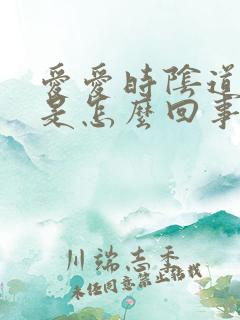 愛愛時陰道
是怎麼回事
川端志季
未经同意禁止搭载